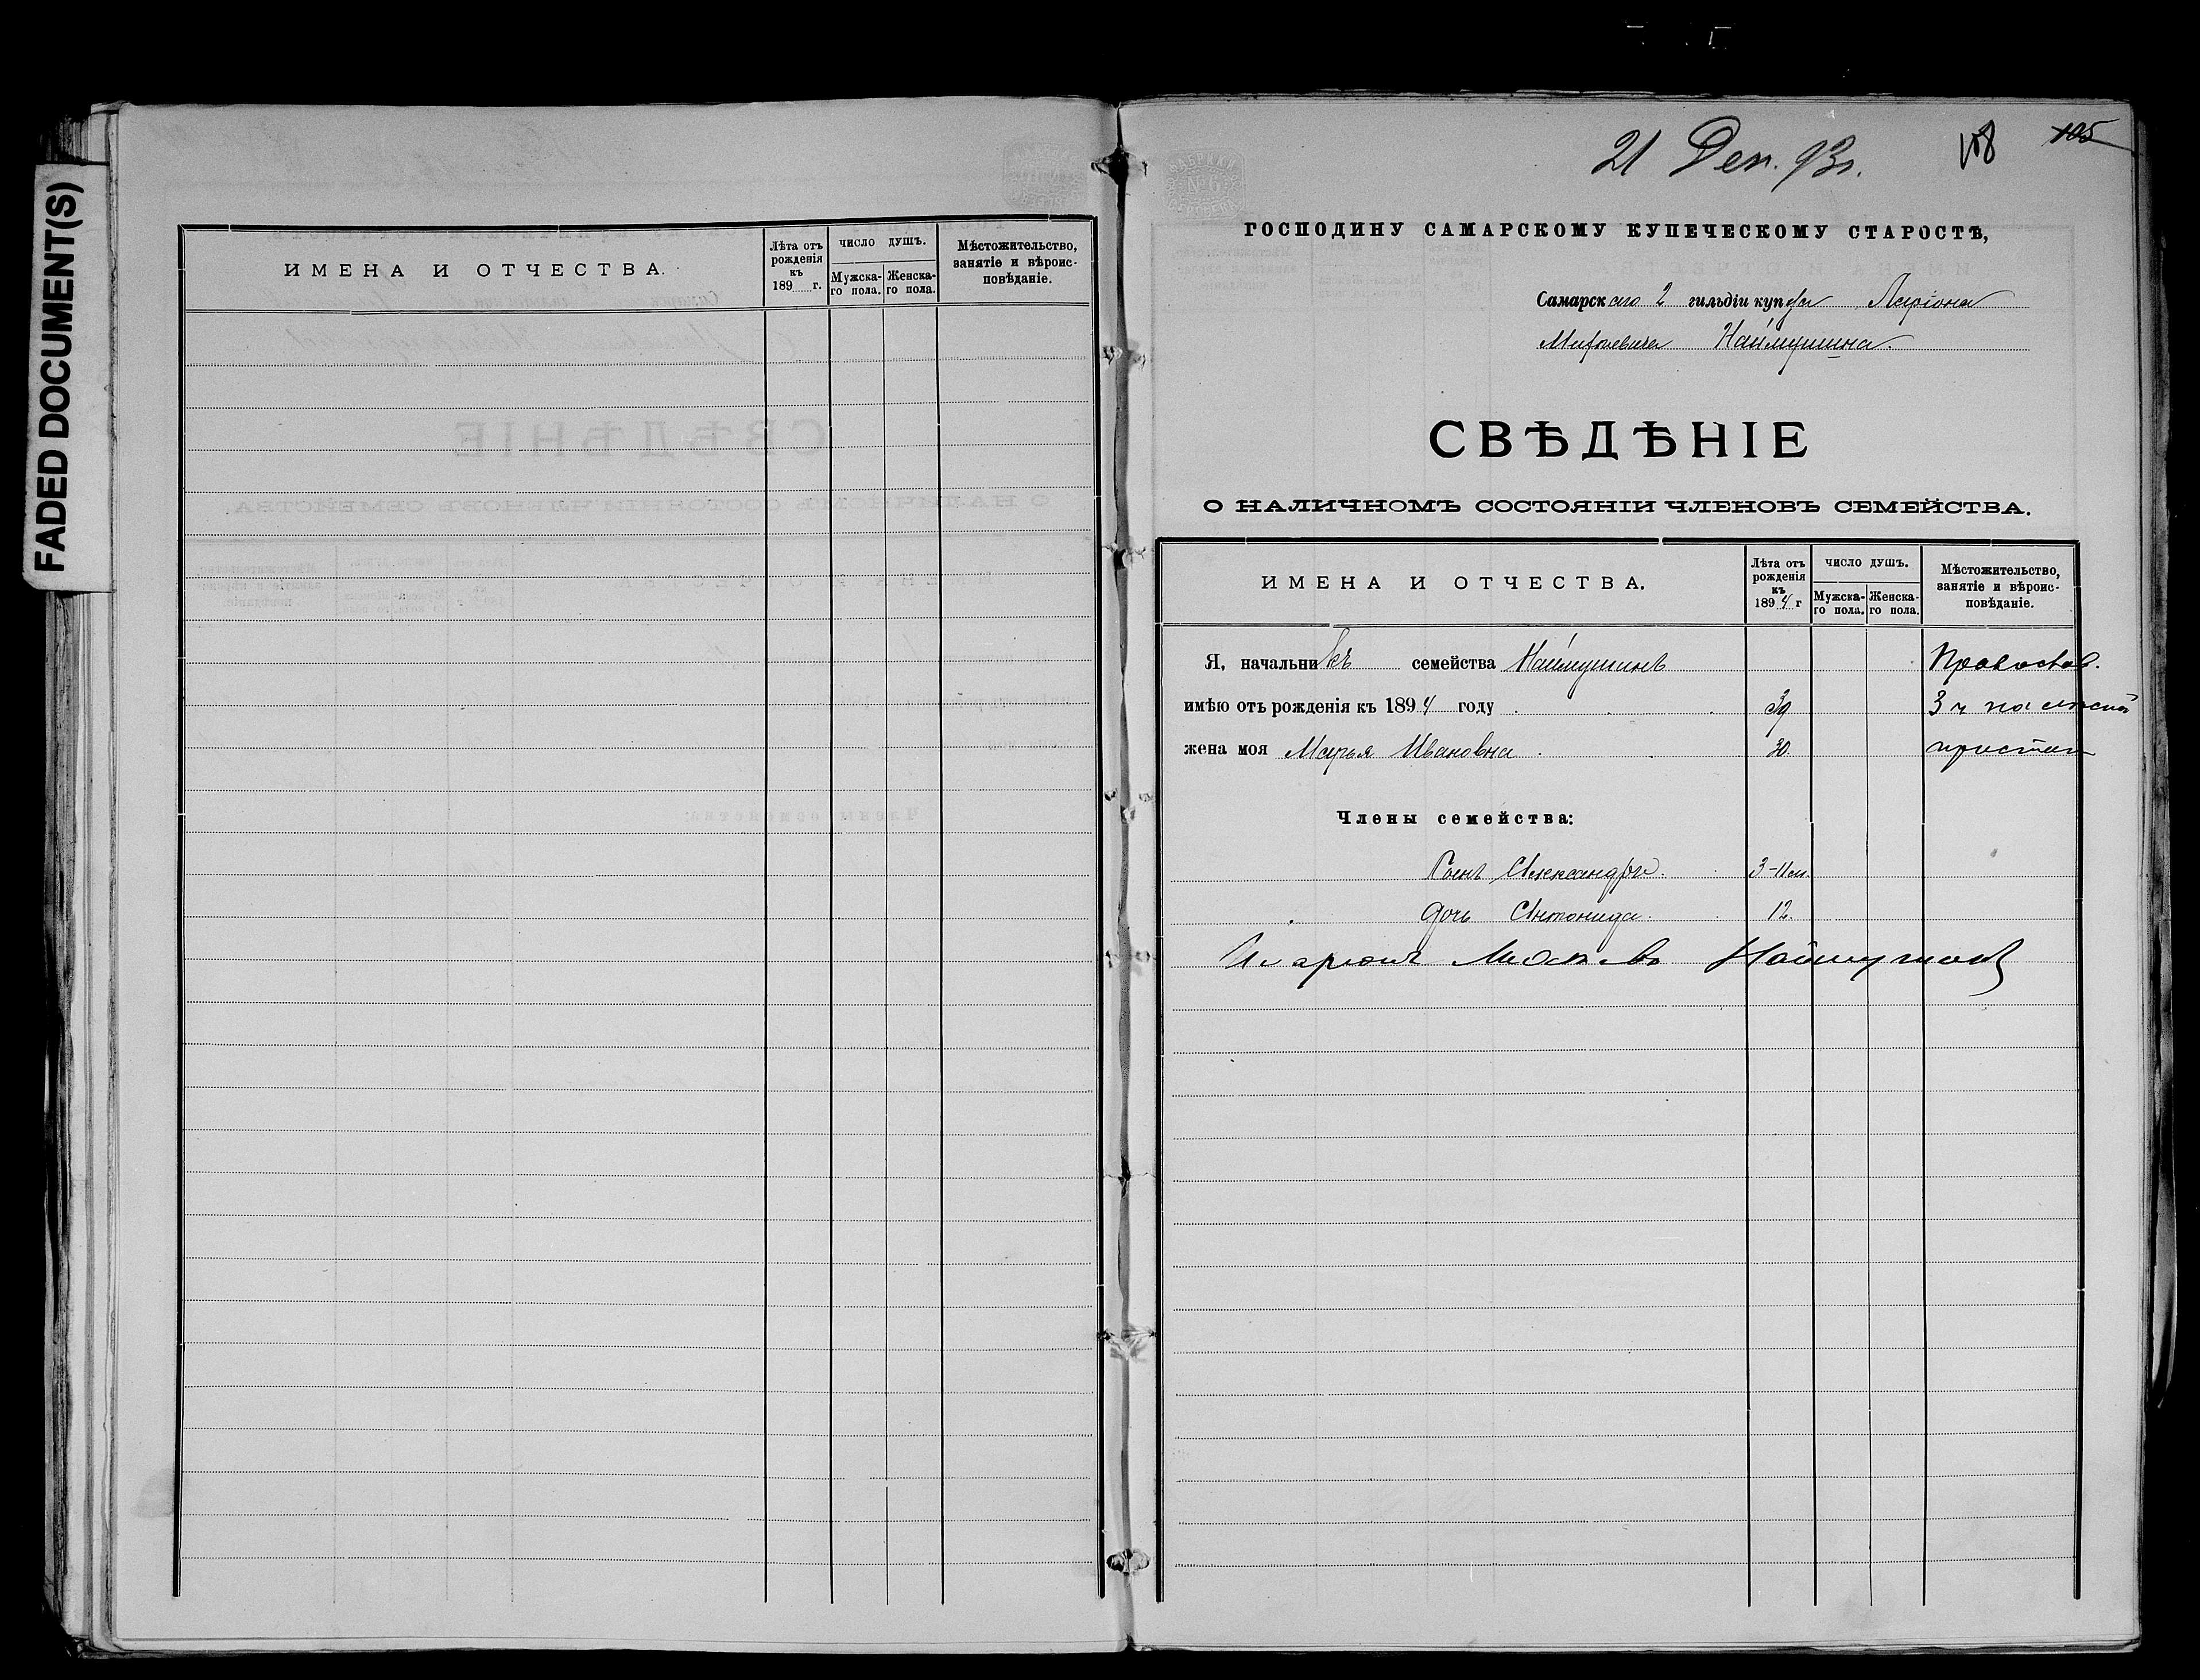 FADED DOCUMENT(S)
ИМЕНА И ОТЧЕСТВА.
Лѣта отъ рожденія къ 189 г.
ЧИСЛО ДУШЪ.
Мужска-го пола.
Женска-го пола.
Мѣстожительство, занятіе и вѣроис-повѣданіе.
21 Дек. 93 г. 105
ГОСПОДИНУ САМАРСКОМУ КУПЕЧЕСКОМУ СТАРОСТѢ,
Самарскаго 2 гильдіи купца Ларіона
Наймушина.
СВѢДѢНІЕ
О НАЛИЧНОМЪ СОСТОЯНІИ ЧЛЕНОВЪ СЕМЕЙСТВА.
ИМЕНА И ОТЧЕСТВА.
Лѣта отъ рожденія къ 1894 г
ЧИСЛО ДУШЪ.
Мужска-го пола.
Женска-го пола.
Мѣстожительство, занятіе и вѣроис-повѣданіе.
Я, начальникъ семейства Наймушинъ Православ.
имѣю отъ рожденія къ 1894 году 39 3 ч
жена моя Марья Ивановна 30 пристан
Члены семейства:
Сынъ Александръ. 3-11 м.
Дочь Антонида. 12.
Иларионъ Наймушинъ